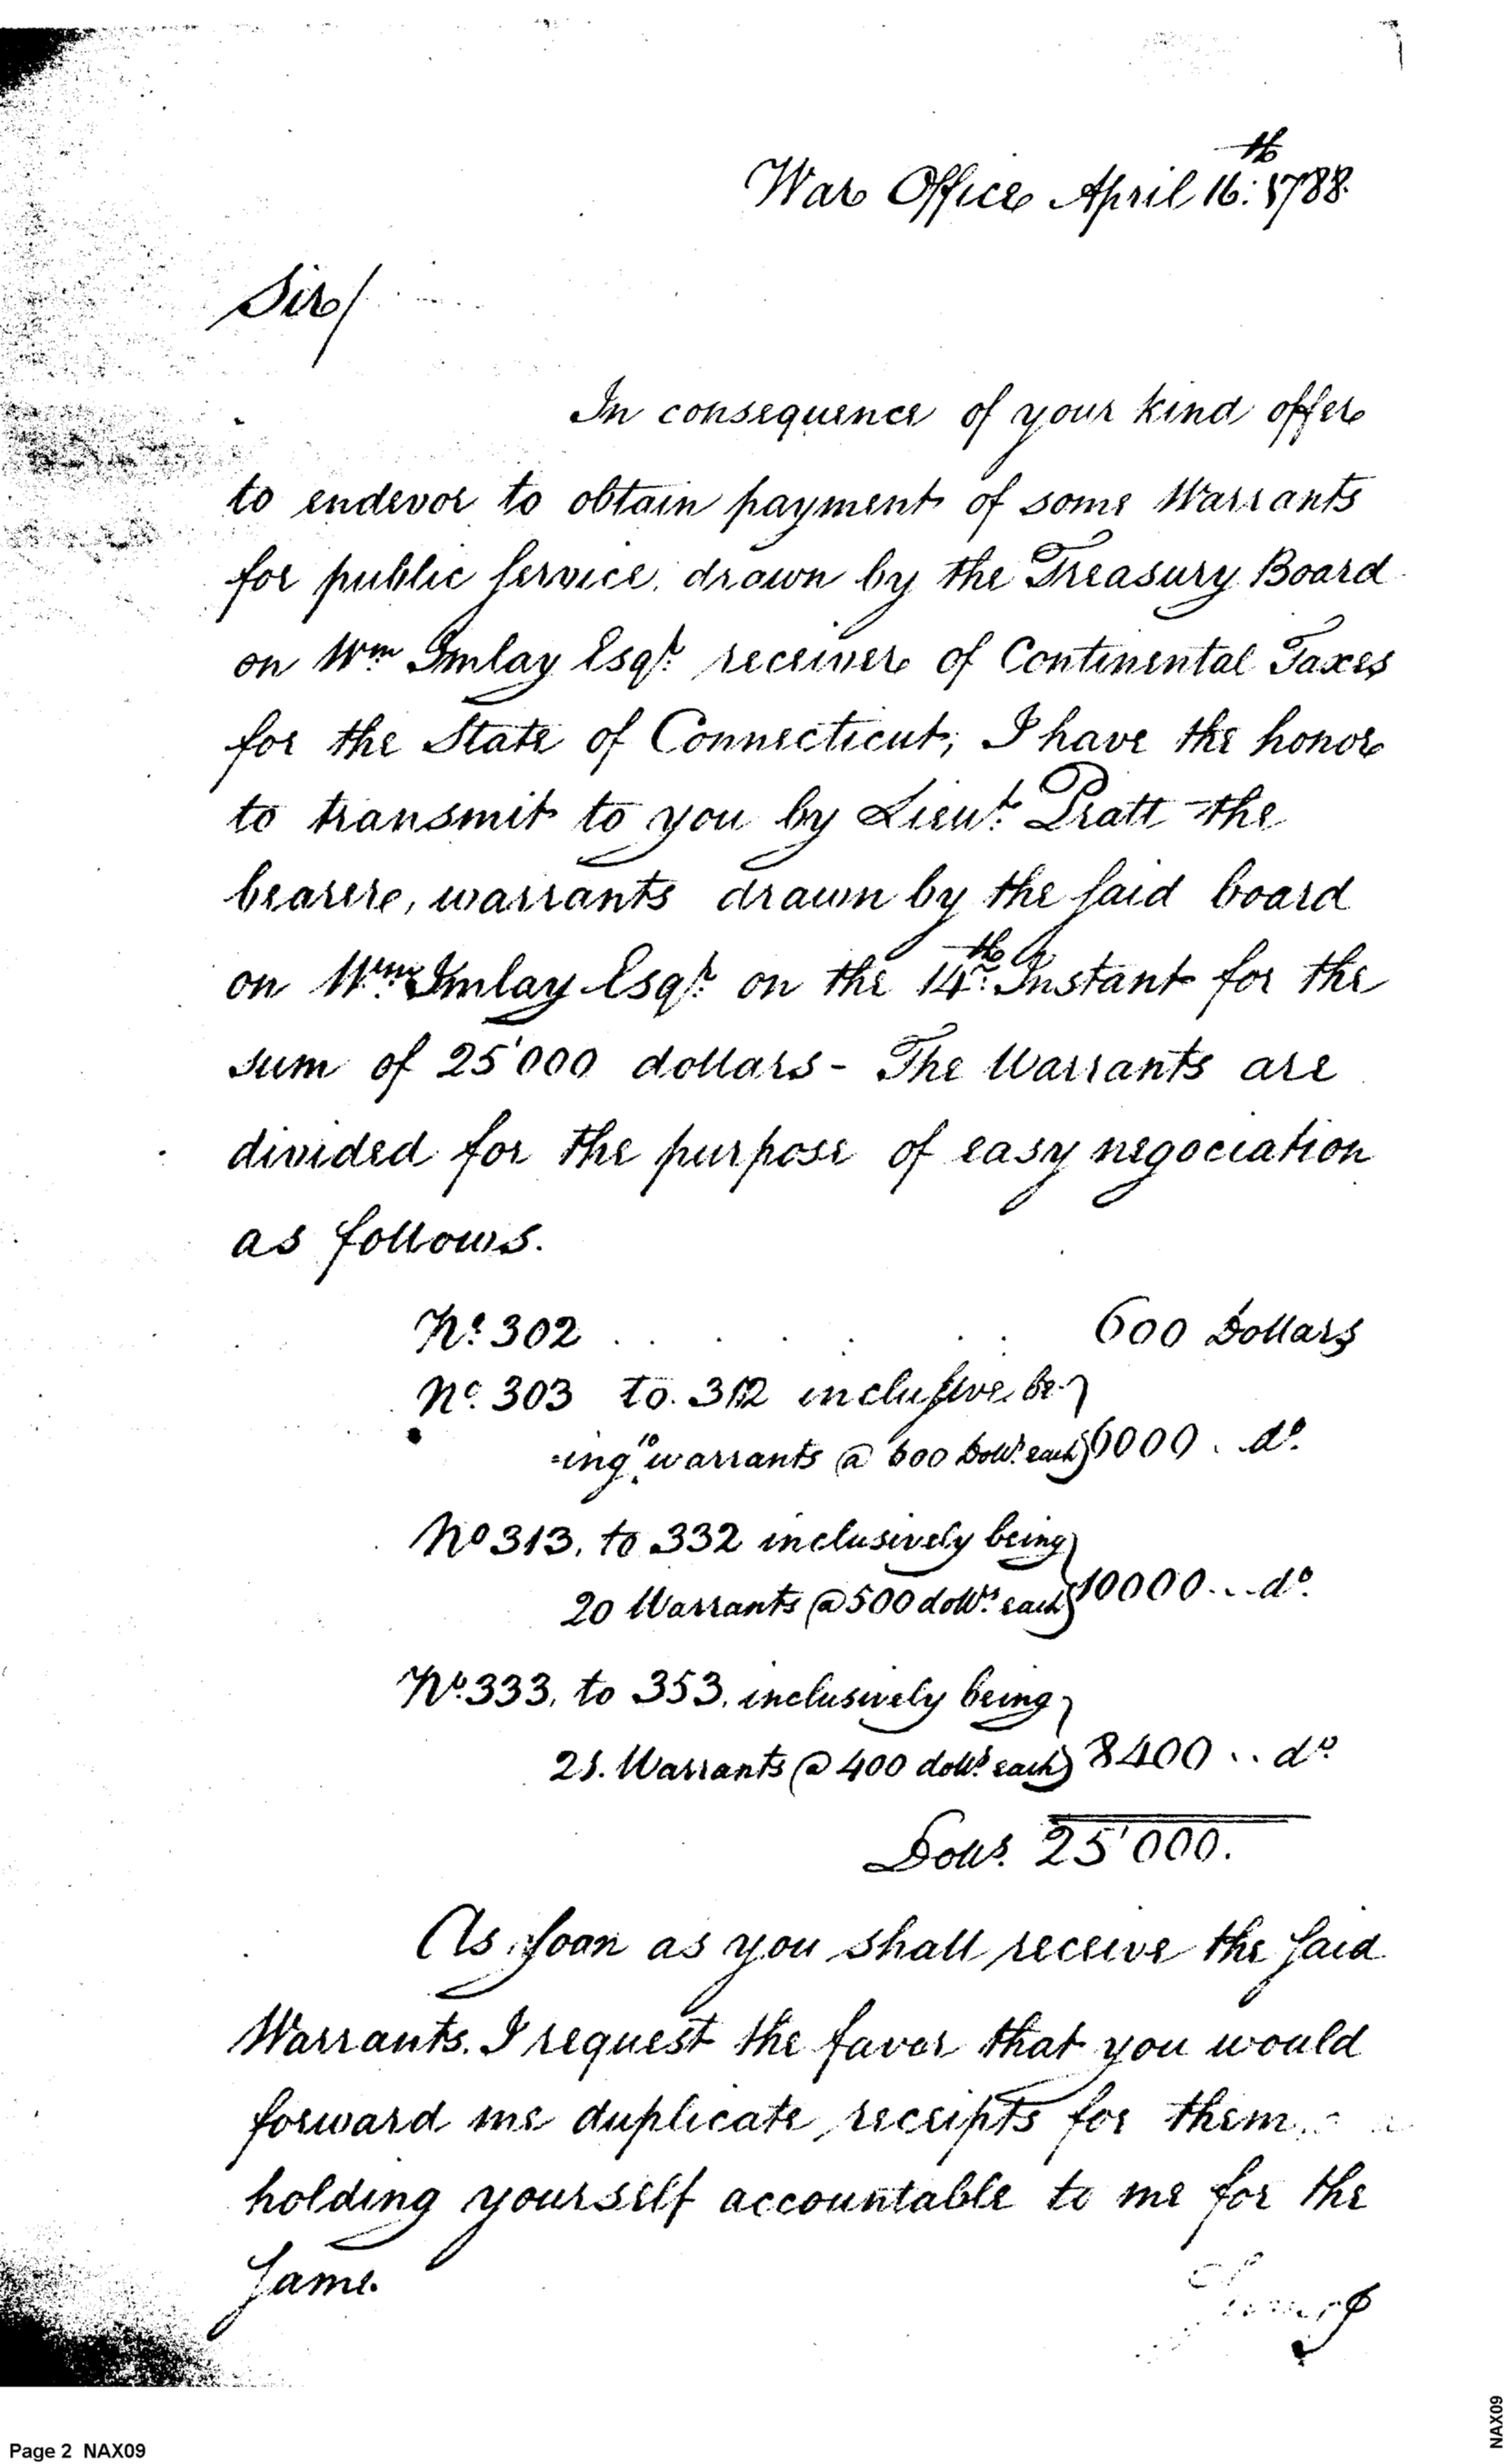 War Office April 16th: 1788.
Sir/
In consequence of your kind offer
to endevor to obtain payment of some Warrants
for public service, drawn by the Treasury Board
on Wm Imlay Esqr. receiver of Continental Taxes
for the State of Connecticut, I have the honor
to transmit to you by Lieut. Pratt the
bearer, warrants drawn by the said board
on Wm. Imlay Esqr. on the 14th. Instant for the
sum of 25'000 dollars - The Warrants are
divided for the purpose of easy negociation
as follows.
No. 302 . . . . . . 600 Dollars
No. 303 to 312 inclusive be-
ing 10 warrants @ 600 Dolls. each} 6000 . do.
No 313, to 332 inclusively being
20 Warrants @ 500 dolls. each} 10000 .. do.
No. 333, to 353, inclusively being
21. Warrants @ 400 dolls. each} 8400 .. do.
Dolls. 25'000.
As soon as you shall receive the said
Warrants. I request the favor that you would
forward me duplicate receipts for them
holding yourself accountable to me for the
same.
Page 2 NAX09
NAX09